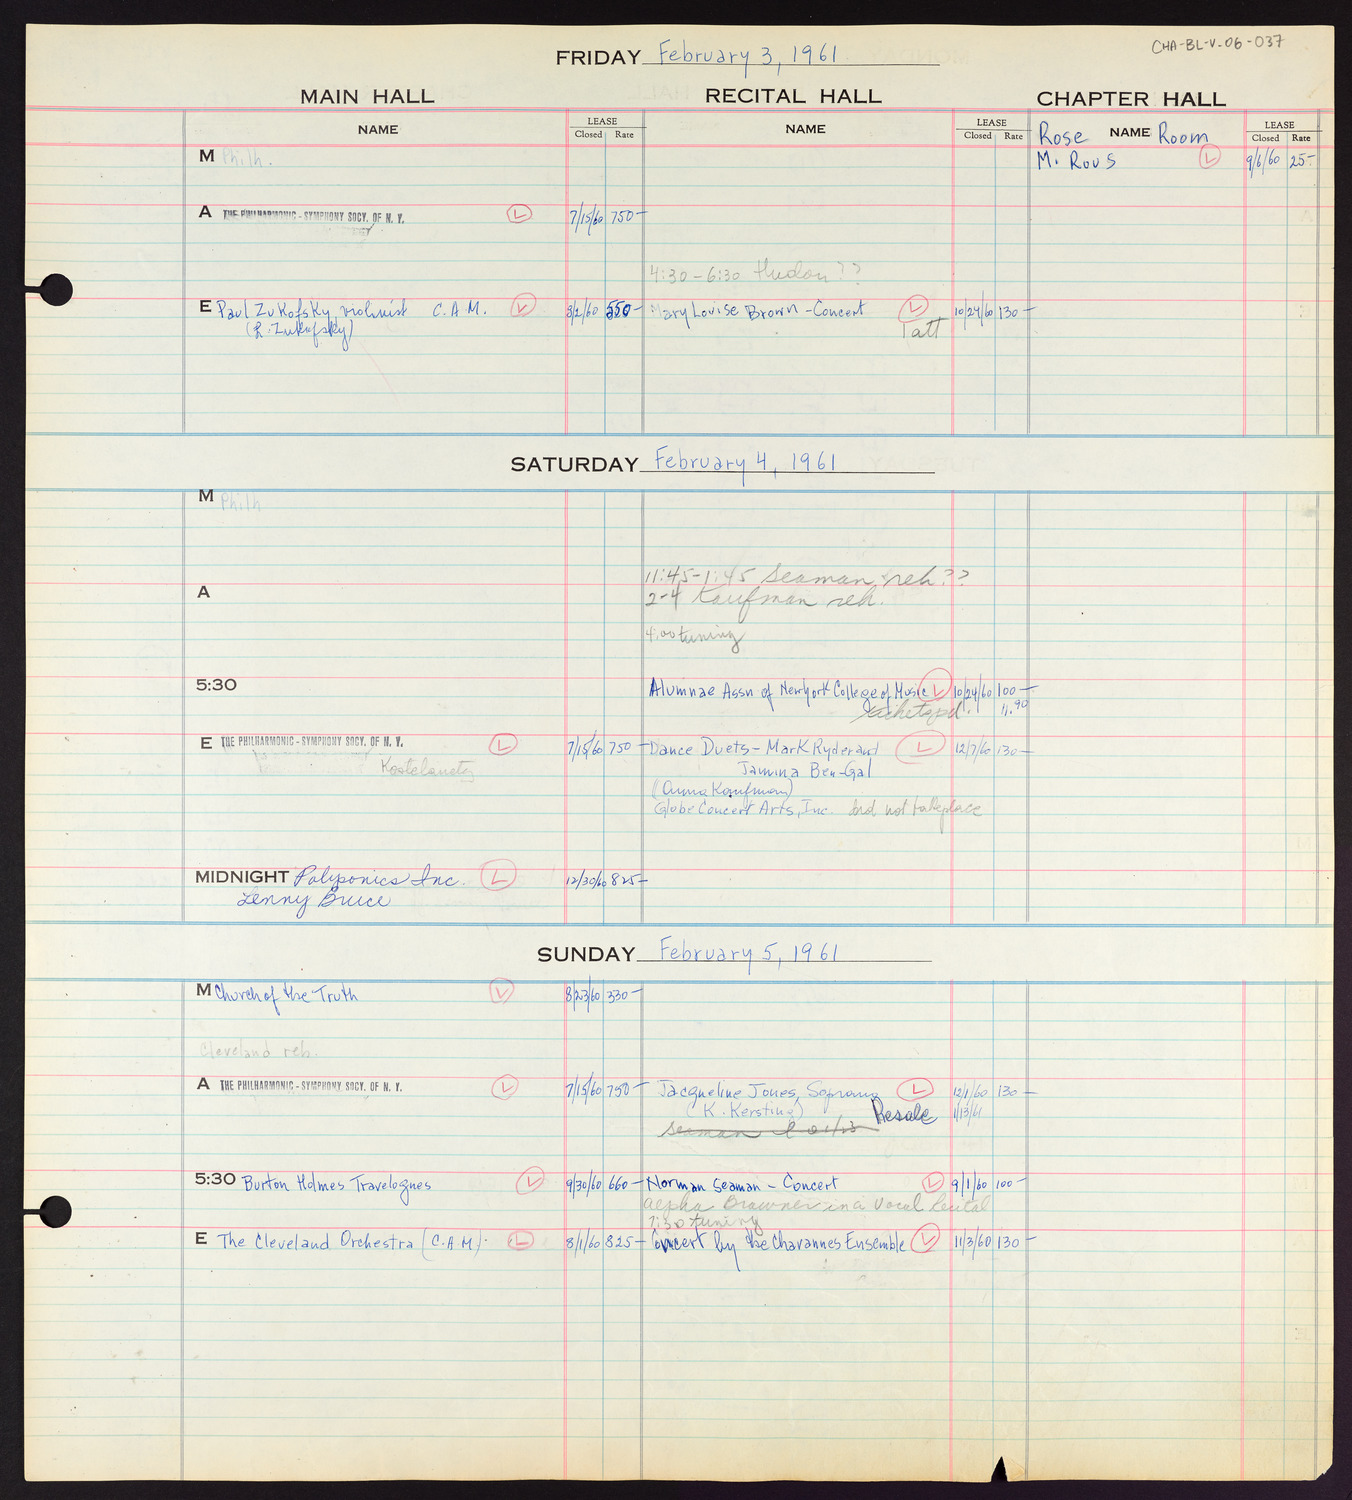 CHA-BL-V.06-037
FRIDAY February 3, 1961
MAIN HALL RECITAL HALL CHAPTER HALL
NAME LEASE Closed Rate NAME LEASE Closed Rate Rose NAME Room LEASE Closed Rate
M Philh. M. Rous L 9/6/60 25-
A THE PHILHARMONIC-SYMPHONY SOCY. OF N. Y. L 7/15/60 750-
4:30-6:30 Hudon??
E Paul Zukofsky, violinist C.A.M. L 8/2/60 550- Mary Louise Brown - Concert L 10/24/60 130-
(L. Zukofsky) Tatt
SATURDAY February 4, 1961
M Philh
11:45-1:45 Seaman reh??
A 2-4 Kaufman reh.
4:00 tuning
5:30 Alumnae Assn of New York College of Music L 10/24/60 100-
11.90
E THE PHILHARMONIC-SYMPHONY SOCY. OF N. Y. L 7/15/60 750- Dance Duets - Mark Ryder and L 12/7/60 130-
Kostelanetz Jamina Ben-Gal
(Anna Kaufman)
Globe Concert Arts, Inc. did not take place
MIDNIGHT Polysonics Inc. L 12/30/60 825-
Lenny Bruce
SUNDAY February 5, 1961
M Church of the Truth L 8/23/60 330-
Cleveland reh.
A THE PHILHARMONIC-SYMPHONY SOCY. OF N. Y. L 7/15/60 750- Jacqueline Jones, Soprano L 12/1/60 130-
(K. Kersting) Resale 1/13/61
Seaman
5:30 Burton Holmes Travelogues L 9/30/60 660- Norman Seaman - Concert L 9/1/60 100-
Alpha Brawner in a Vocal Recital
7:30 tuning
E The Cleveland Orchestra (C.A.M.) L 8/1/60 825- Concert by the Chavannes Ensemble L 11/3/60 130-